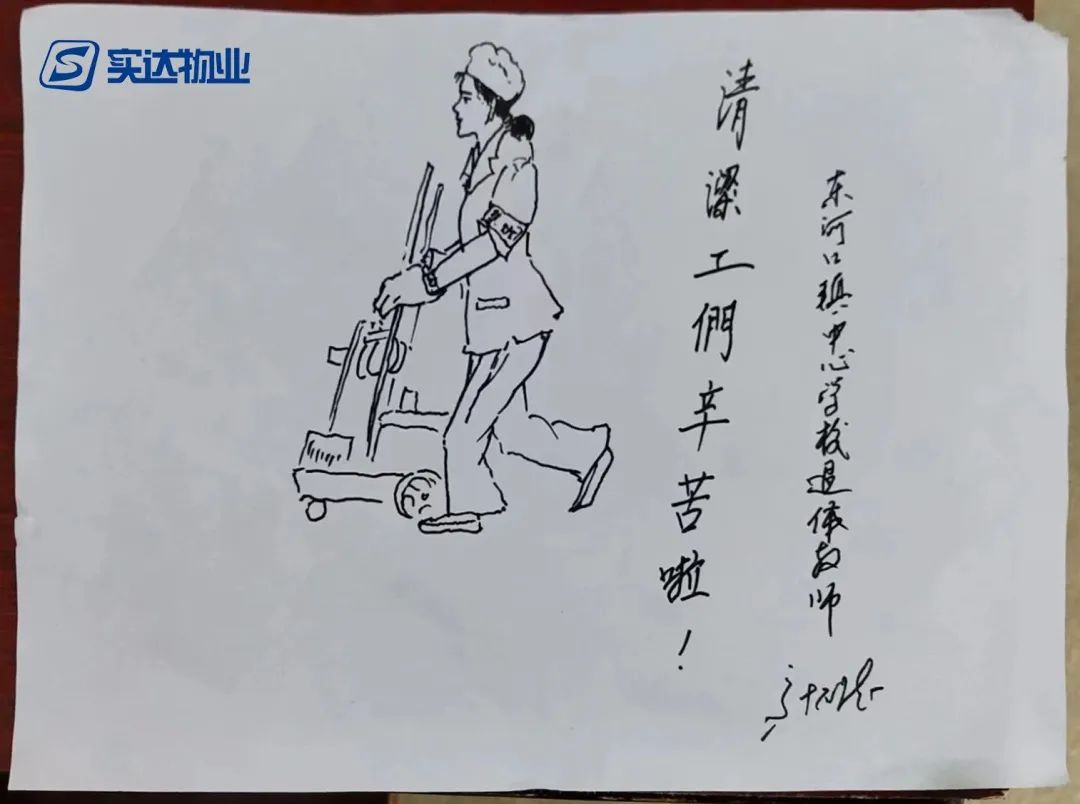 实达物业
清潔工們辛苦啦！
东河口镇中心学校退休教师